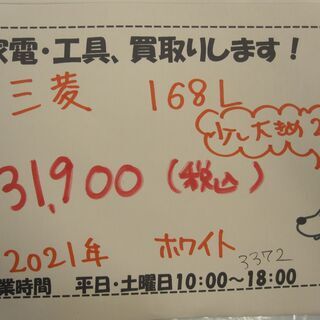 家電・工具、買取りします！
三菱 168L
少し大きめ2
31,900（税込）
2021年 ホワイト
3372
営業時間 平日・土曜日10:00～18:00